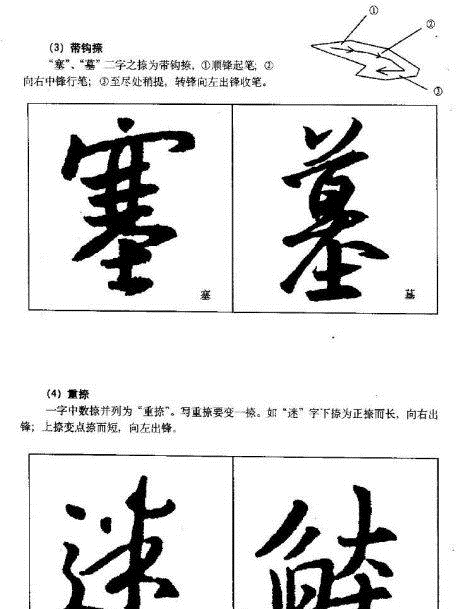 ①
②
（3）带钩捺
“塞”、“墓”二字之捺为带钩捺，①顺锋起笔；②
向右中锋行笔；③至尽处稍提，转锋向左出锋收笔。
③
塞 墓
塞 墓
（4）重捺
一字中数捺并列为“重捺”。写重捺要变一捺。如“迷”字下捺为正捺而长，向右出
锋；上捺变点捺而短，向左出锋。
迷